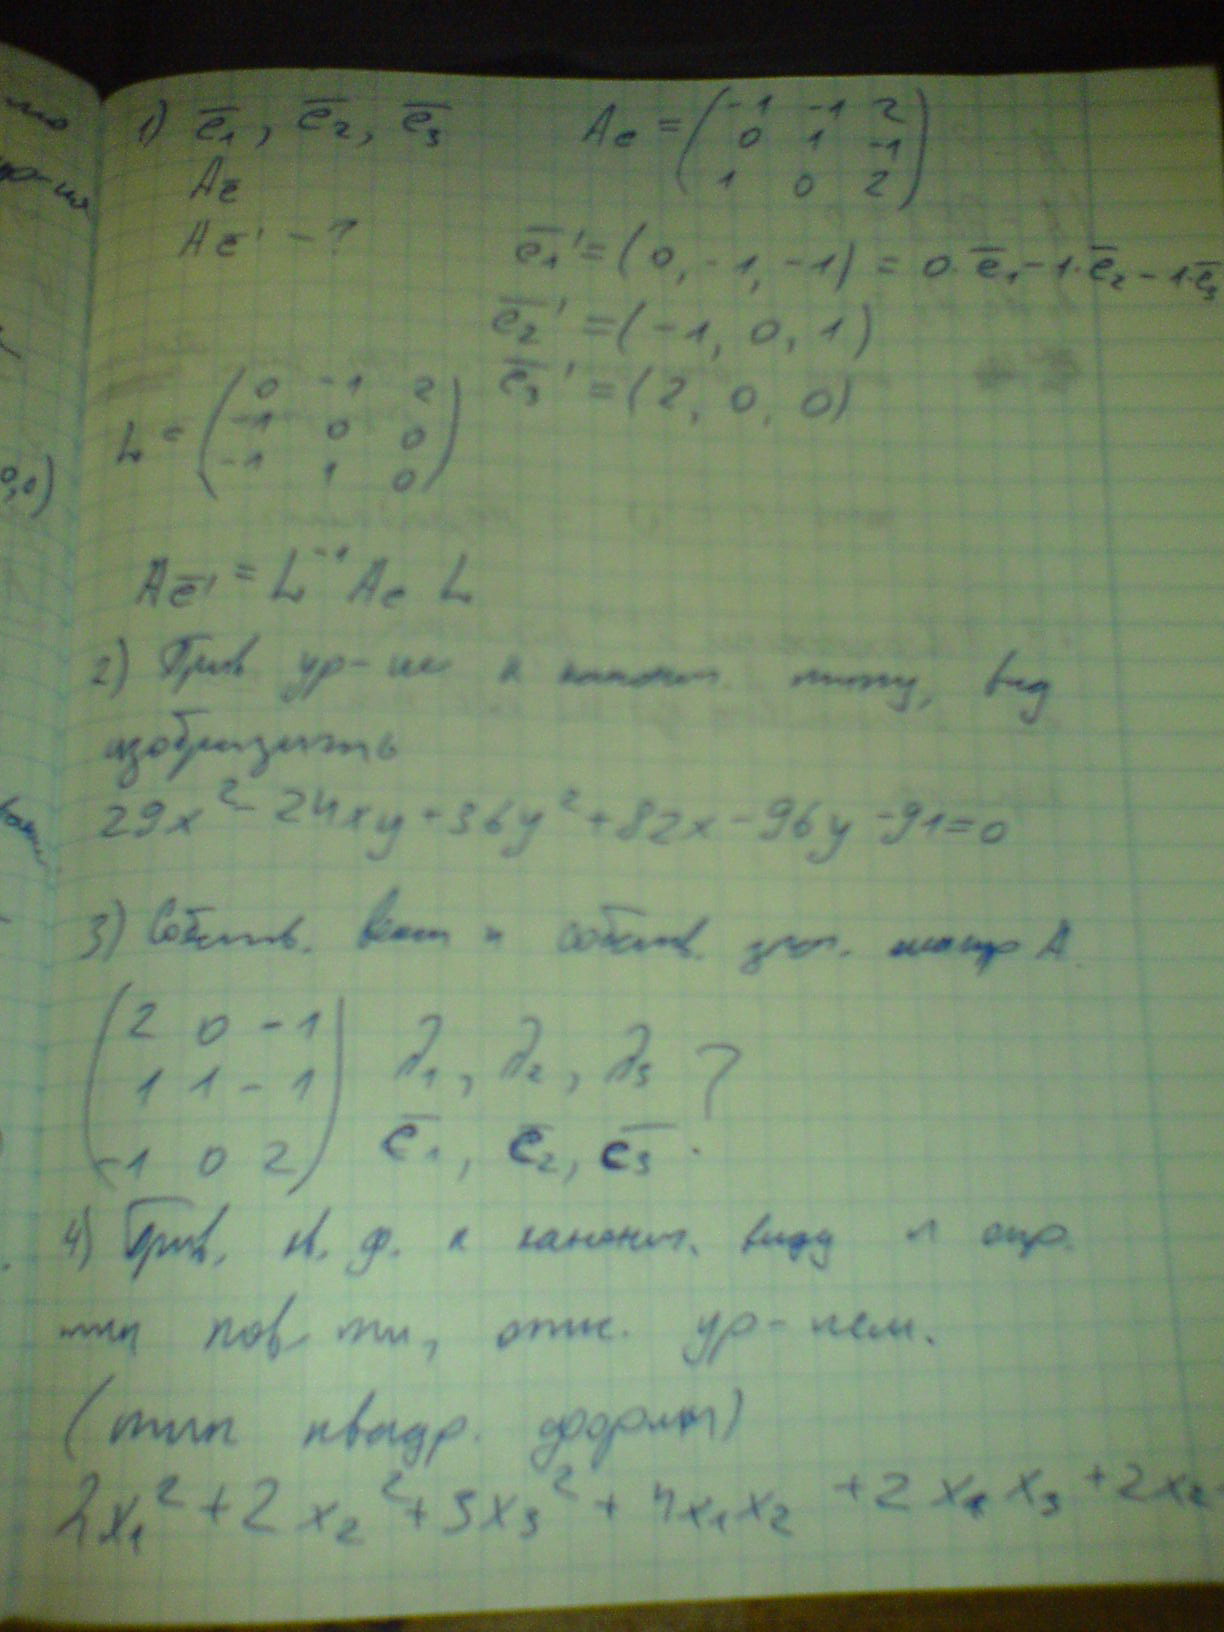 1) e̅₁, e̅₂, e̅₃
Ae̅
Ae̅' - ?
Ae = (-1 -1 2
0 1 -1
1 0 2)
e̅₁' = (0, -1, -1) = 0·e̅₁ - 1·e̅₂ - 1·e̅₃
e̅₂' = (-1, 0, 1)
e̅₃' = (2, 0, 0)
L = (0 -1 2
-1 0 0
-1 1 0)
Ae̅' = L⁻¹ Ae L
2) Прив ур-ие к канонич. типу, вид
изобразить
29x² - 24xy + 36y² + 82x - 96y - 91 = 0
3) Собств. вект и собств. знач. матр A.
(2 0 -1
1 1 -1
-1 0 2)
λ₁, λ₂, λ₃ ?
e̅₁, e̅₂, e̅₃
4) Прив. кв. ф. к канонич. виду и опр.
тип пов-ти, опис. ур-нем.
(тип квадр. формы)
2x₁² + 2x₂² + 5x₃² + 4x₁x₂ + 2x₁x₃ + 2x₂